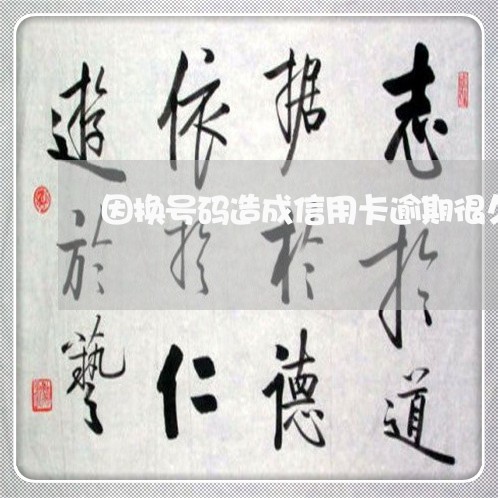 志於道
据於德
依於仁
遊於藝
因换号码造成信用卡逾期很